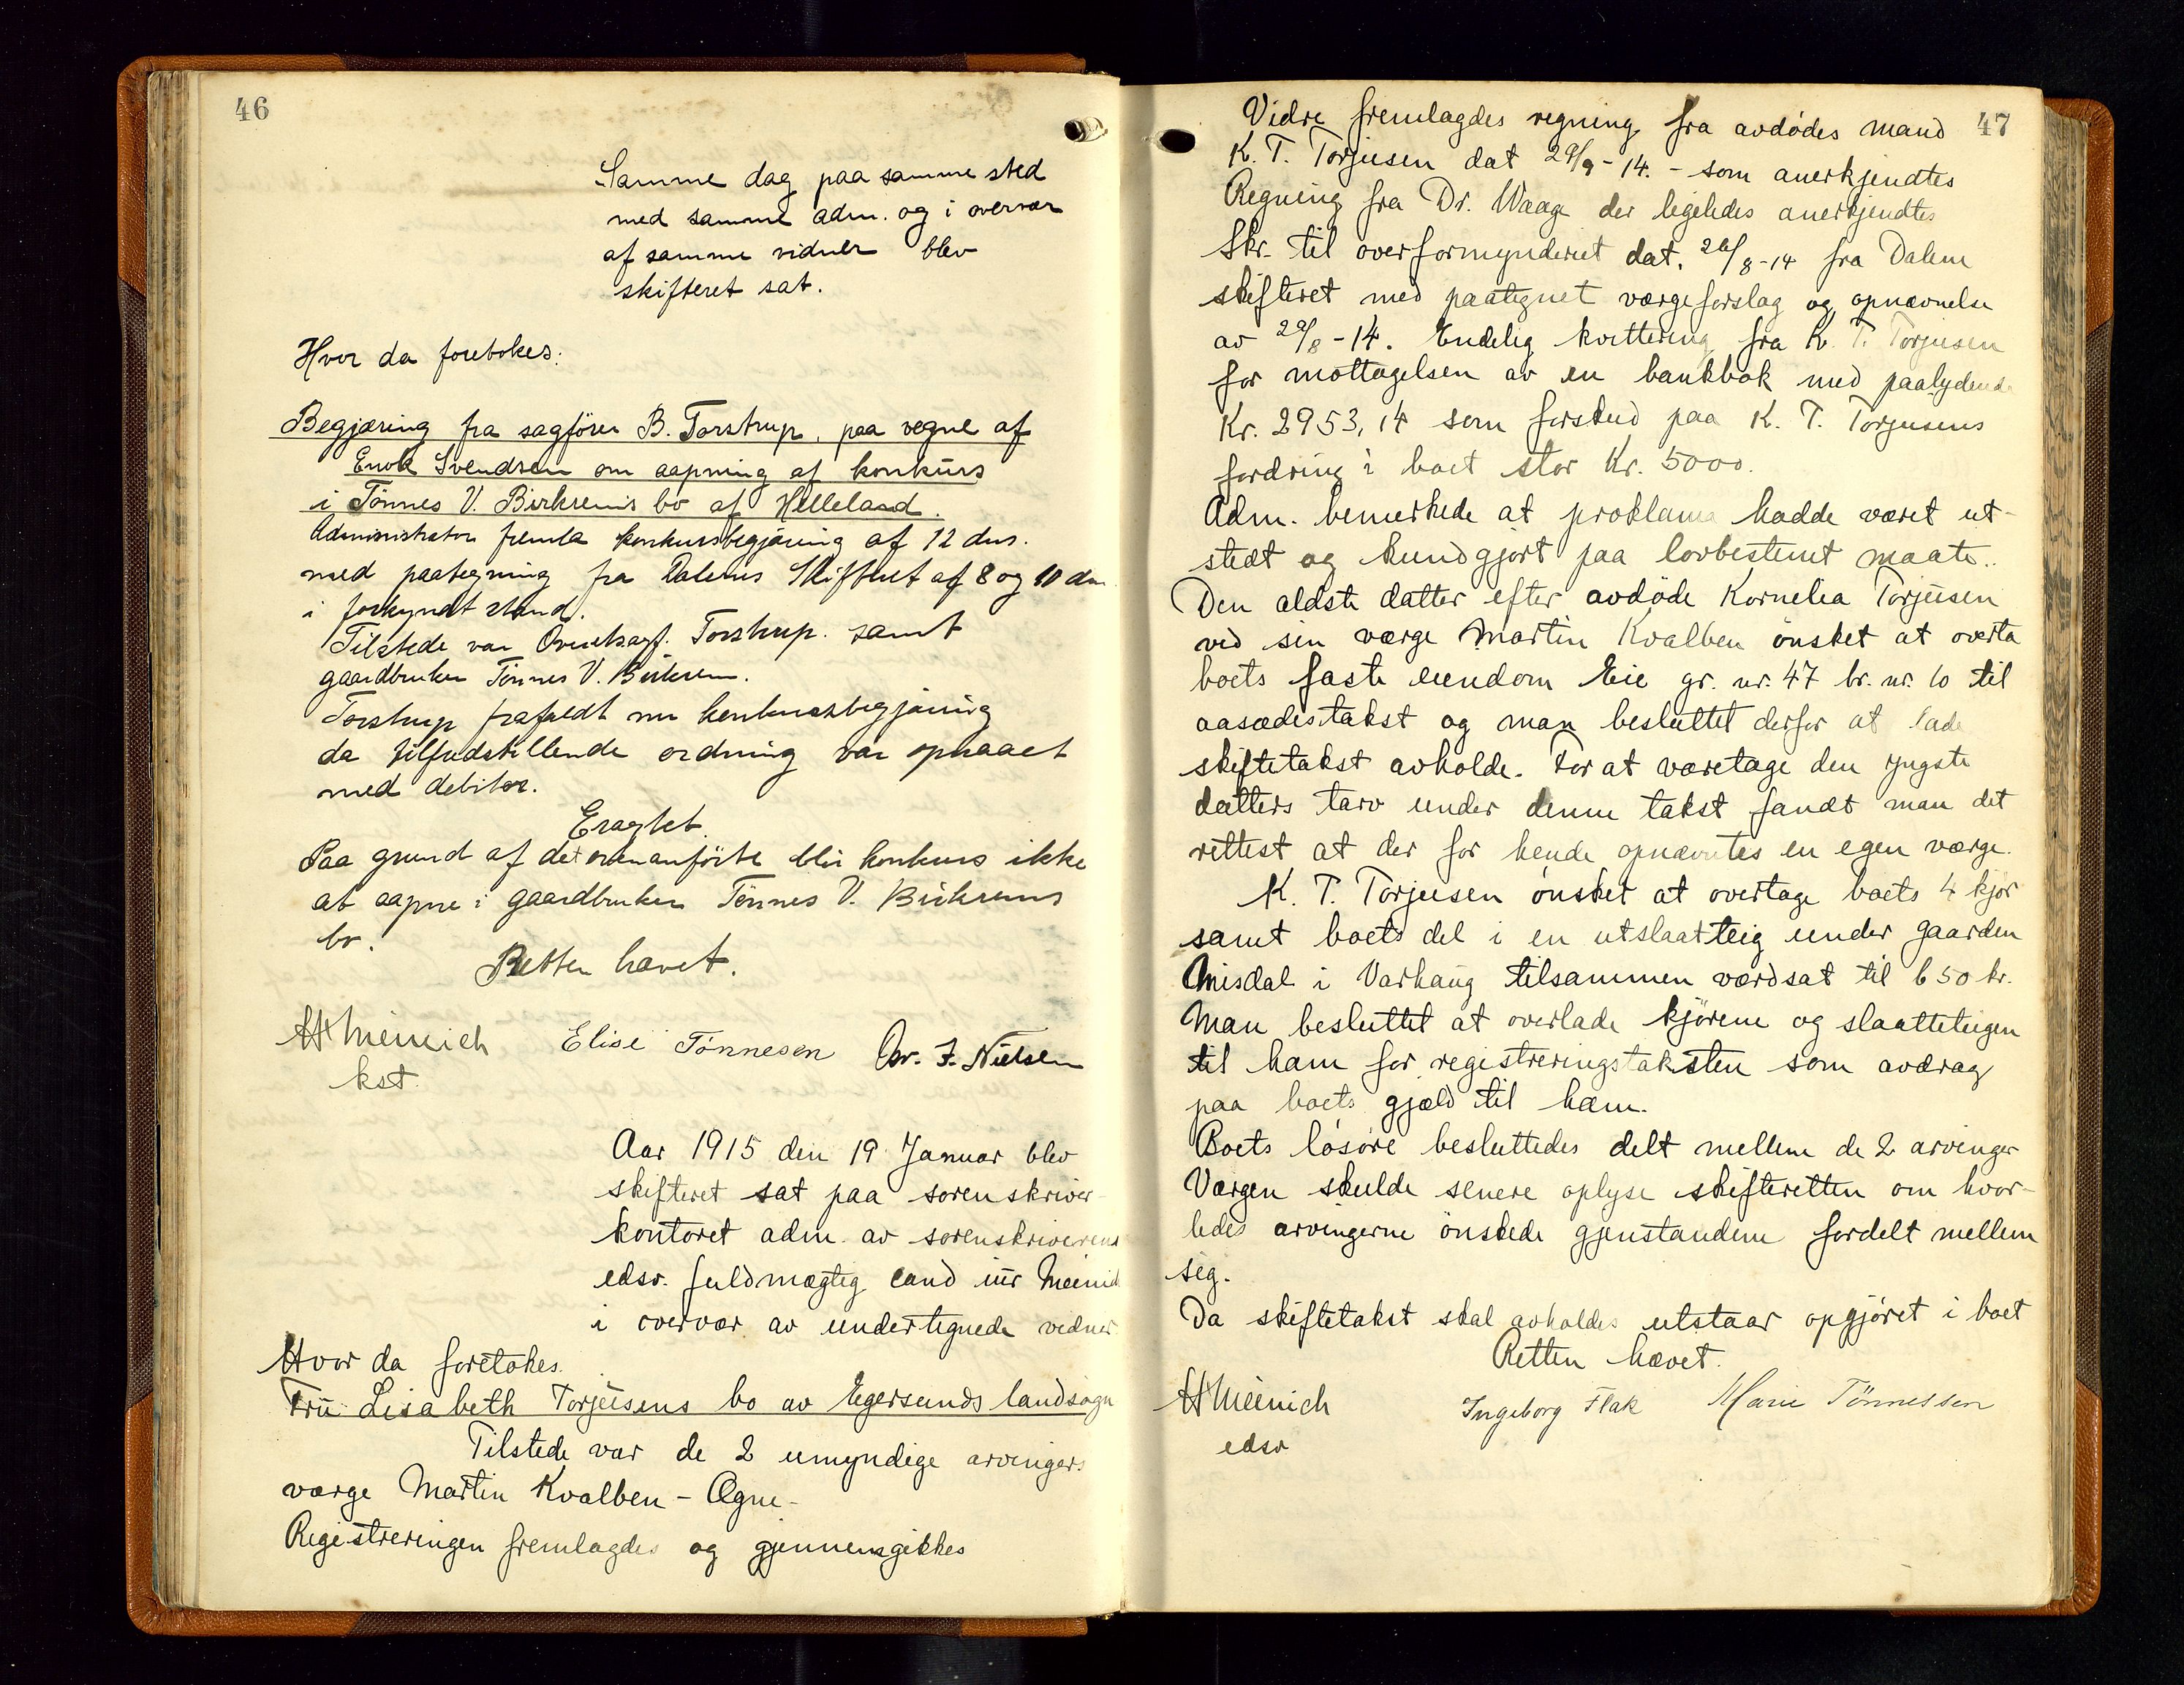 46
Samme dag paa samme sted
med samme adm. og i overvær
af samme vidner blev
skifteret sat.
Hvor da foretokes:
Begjæring fra sagförer B. Torstrup, paa vegne af
Enok Svendsen om aapning af konkurs
i Tönnes V. Birkrems bo af Helleland.
Administrator fremla konkursbegjæring af 12 dns.
med paategning fra Dalernes Skifteret af 8 og 10 dns
i forkyndt stand.
Tilstede var Overretssagf. Torstrup samt
gaardbruker Tönnes V. Birkrem.
Torstrup frafaldt nu konkursbegjæring
da tilfredstillende ordning var opnaaet
med debitor.
Eragtet.
Paa grund af det ovenanförte blir konkurs ikke
at aapne i gaardbruker Tönnes V. Birkrems
bo.
Retten hævet.
H Meinich Elise Tönnesen Chr. F. Nielsen
kst.
Aar 1915 den 19 Januar blev
skifteret sat paa sorenskriver-
kontoret adm. av sorenskriverens
edsv. fuldmægtig cand jur Meinich
i overvær av undertegnede vidner
Hvor da foretokes.
Fru Lisabeth Torjusens bo av Egersunds landsogn
Tilstede var de 2 umyndige arvingers
værge Martin Kvalben - Ogne -
Registreringen fremlagdes og gjennemgikkes
47
Vidre fremlagdes regning fra avdödes mand
K. T. Torjusen dat 29/9-14. - som anerkjendtes
Regning fra Dr. Waage der ligeledes anerkjendtes
Skr. til overformynderiet dat. 26/8-14 fra Dalerne
skifteret med paategnet værgeforslag og opnævnelse
av 29/8-14. Endelig kvittering fra K. T. Torjusen
for mottagelsen av en bankbok med paalydende
Kr. 2953,14 som forskud paa K. T. Torjusens
fordring i boet stor Kr. 5000.
Adm. bemerkede at proklama hadde været ut-
stedt og kundgjort paa lovbestemt maate.
Den ældste datter efter avdöde Kornelia Torjusen
ved sin værge Martin Kvalben önsket at overta
boets faste eiendom Eie gr. nr. 47 br. nr. 10 til
aasædestakst og man besluttet derfor at lade
skiftetakst avholde. For at væretage den yngste
datters tarv under denne takst fandt man det
rettest at der for hende opnævntes en egen værge.
K. T. Torjusen önsket at overtage boets 4 kjör
samt boets del i en utslaatteig under gaarden
Misdal i Varhaug tilsammen værdsat til 650 kr.
Man besluttet at overlade kjörene og slaatteteigen
til ham for registreringstaksten som avdrag
paa boets gjæld til ham.
Boets lösöre besluttedes delt mellem de 2 arvinger
Værgen skulde senere oplyse skifteretten om hvor-
ledes arvingerne önskede gjenstandene fordelt mellem
sig.
Da skiftetakst skal avholdes utstaar opgjöret i boet
Retten hævet.
H Meinich Ingeborg Flak Marie Tönnessen
edsv